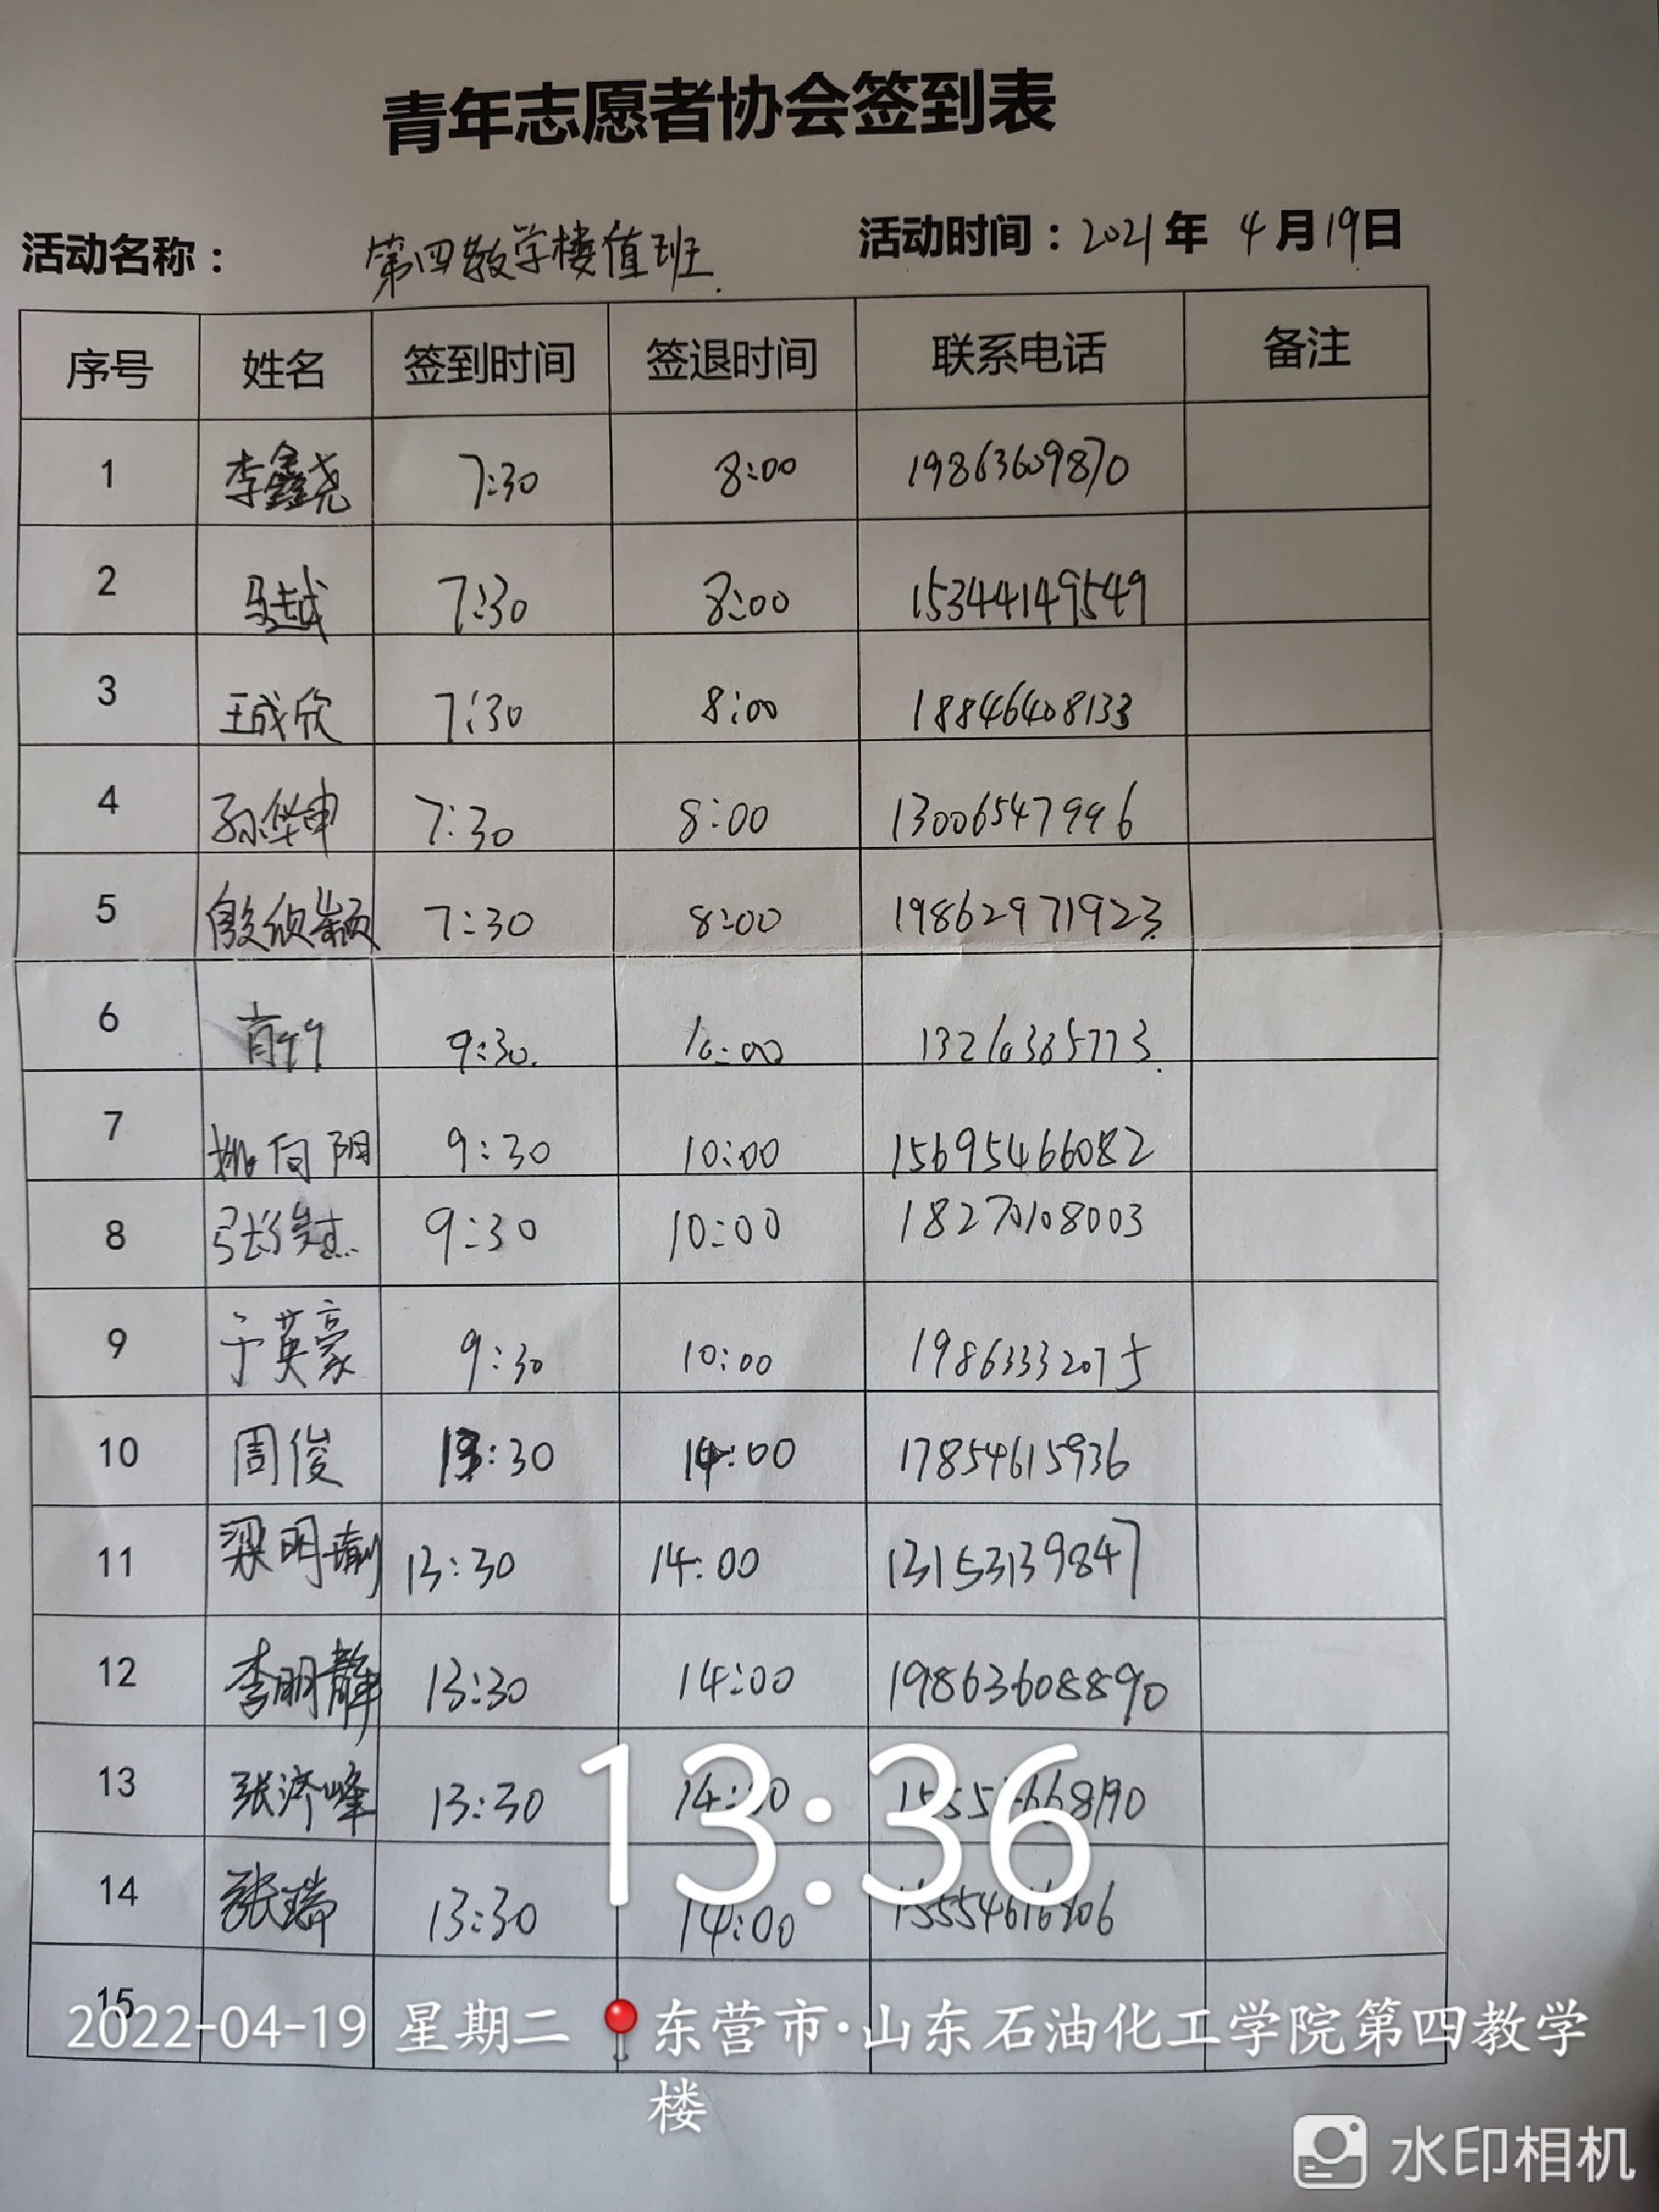 青年志愿者协会签到表
活动名称： 第四教学楼值班. 活动时间：2021年 4月19日
序号 姓名 签到时间 签退时间 联系电话 备注
1 李鑫尧 7:30 8:00 19863609870
2 马越 7:30 8:00 15344149549
3 王成欣 7:30 8:00 18846408133
4 孙华申 7:30 8:00 13006547996
5 殷欣颖 7:30 8:00 19862971923
6 9:30. 10:00
7 姚向阳 9:30 10:00 15695466082
8 9:30 10:00 18270108003
9 于英豪 9:30 10:00 19863332075
10 周俊 13:30 14:00 17854615936
11 梁明瑜 13:30 14:00 13153139847
12 李明静 13:30 14:00 19863608890
13 张济峰 13:30
14 张瑞 13:30 14:00
15
13:36
2022-04-19 星期二 东营市·山东石油化工学院第四教学
楼
水印相机